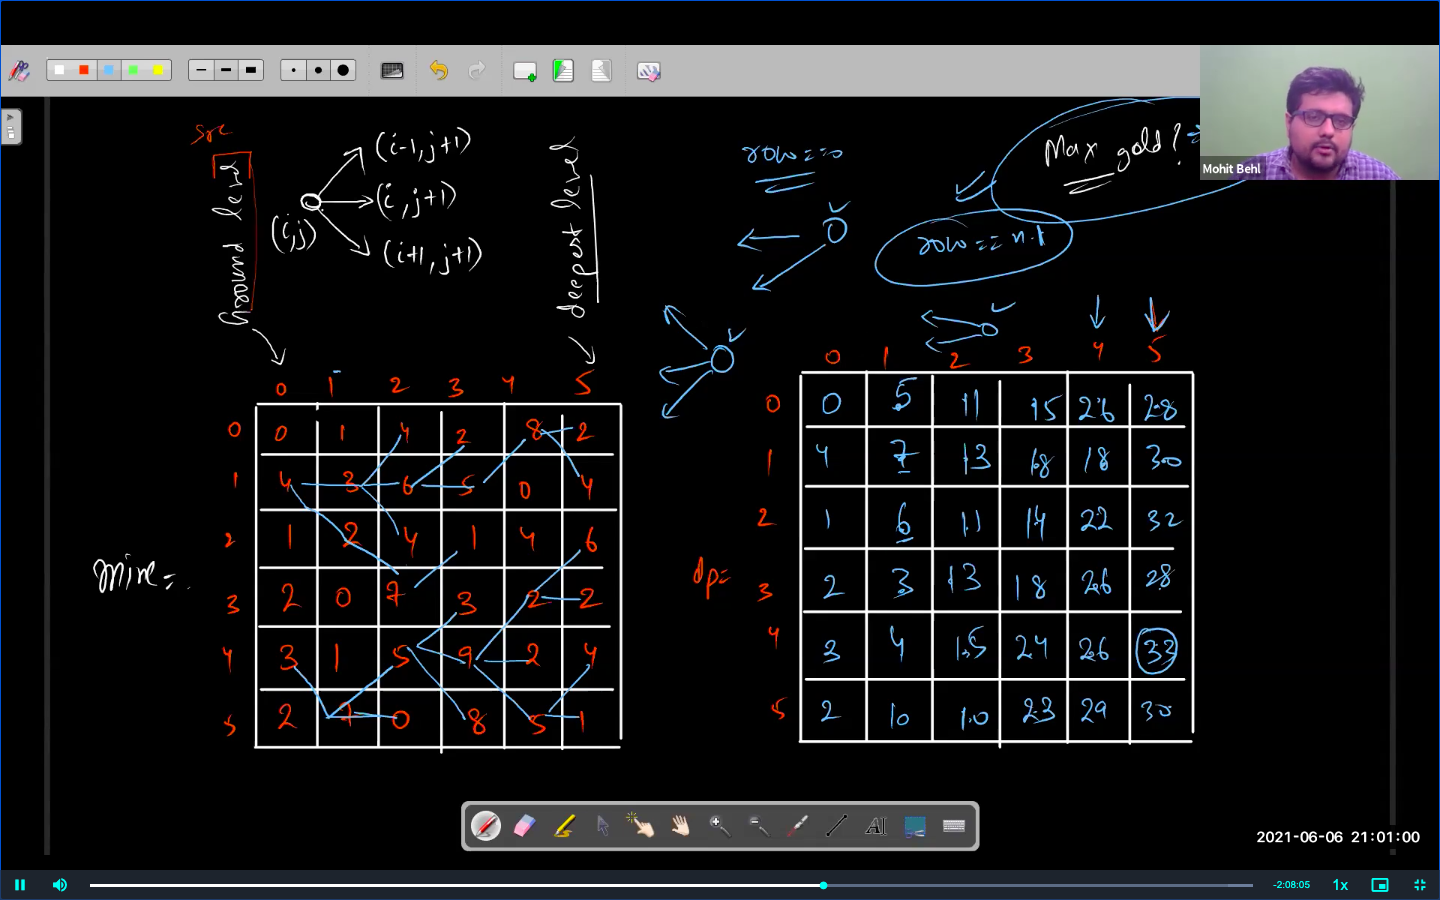 src
Ground level
(i,j)
(i-1, j+1)
(i, j+1)
(i+1, j+1)
deepest level
row==0
row == n-1
Max gold?
Mohit Behl
0 1 2 3 4 5
0 0 1 4 2 8 2
1 4 3 6 5 0 4
2 1 2 4 1 4 6
3 2 0 7 3 2 2
4 3 1 5 9 2 4
5 2 7 0 8 5 1
mine=
0 1 2 3 4 5
0 0 5 11 15 26 28
1 4 7 13 18 18 30
2 1 6 11 14 22 32
3 2 3 13 18 26 28
4 3 4 15 24 26 33
5 2 10 10 23 29 30
dp=
AI
2021-06-06 21:01:00
-2:08:05
1x